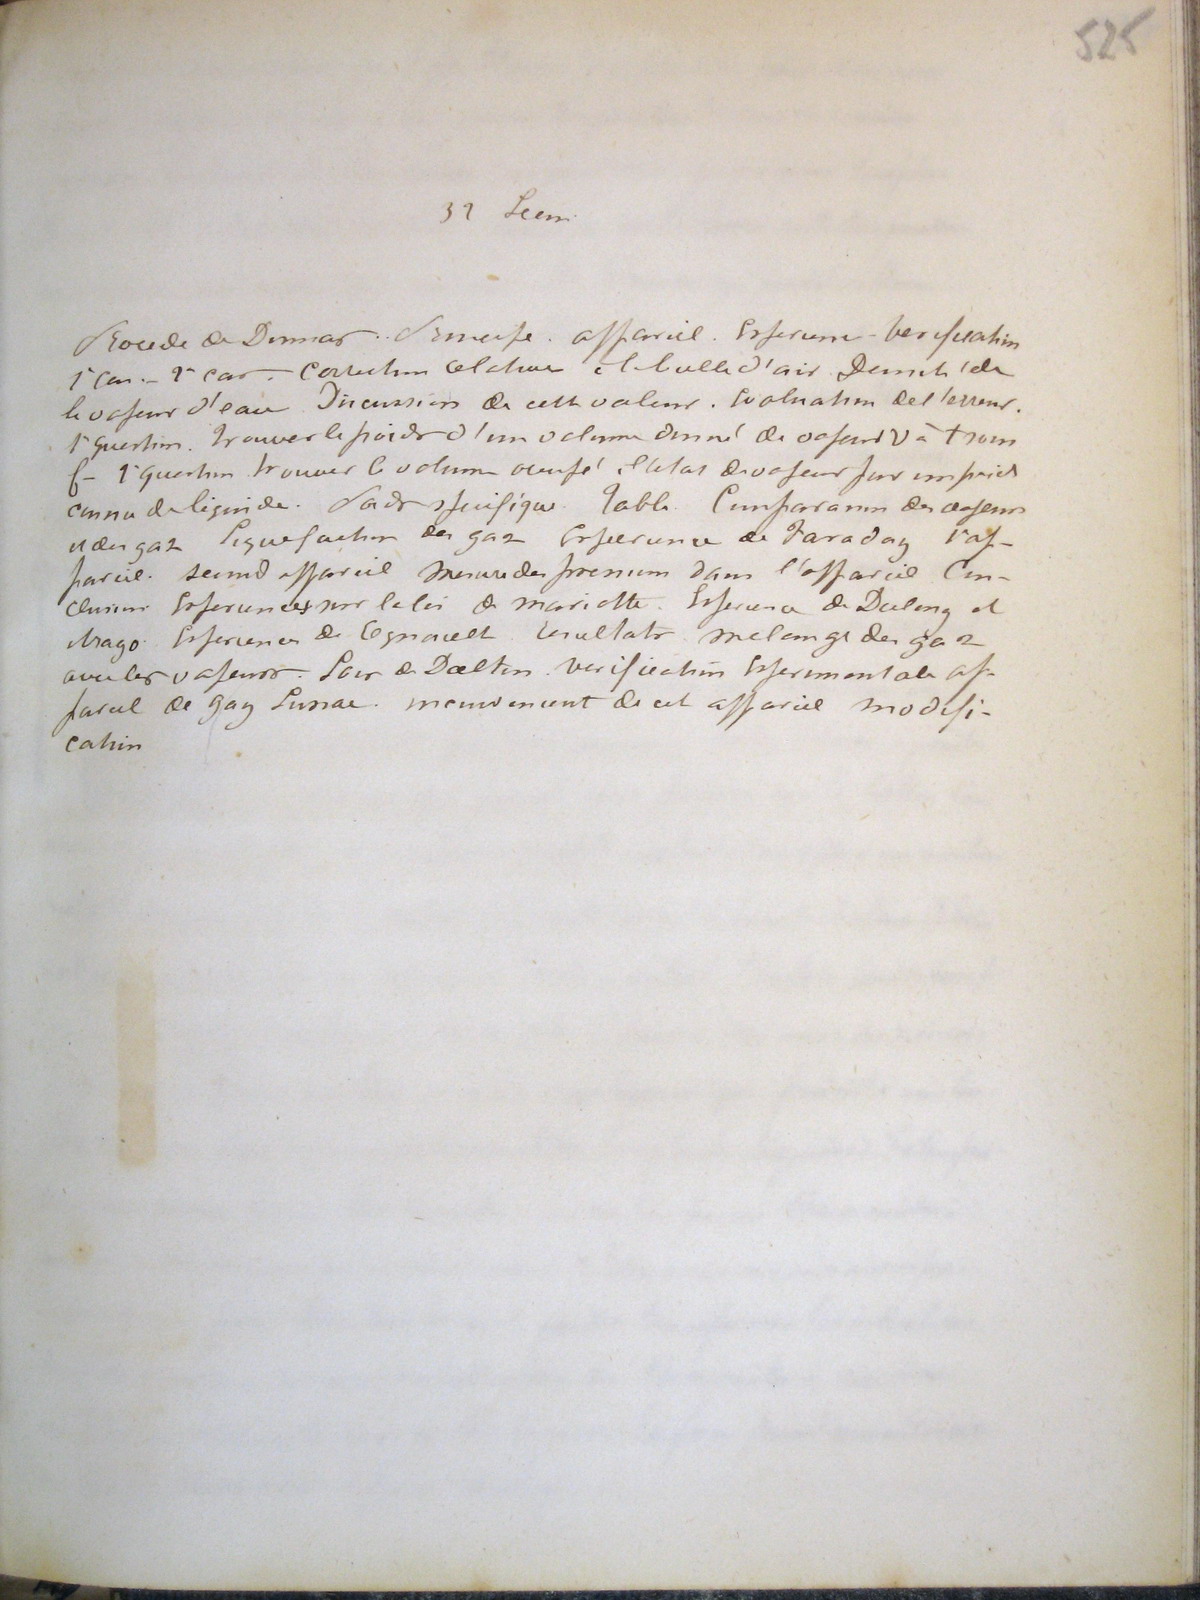 525
32 Lecon
Procede de Dumas. Principe. appareil. Experience - Verification
1r cas. - 2r cas. - Correction relative à la bulle d'air Densité de
la vapeur d'eau Discussion de cette valeur. Evaluation de l'erreur.
1r question. trouver le poids d'un volume donné de vapeur V à t sous
f - 2r question trouver le volume occupé à l'état de vapeur par un poids
connu de liquide. Poids specifique Table Comparaison des vapeurs
et des gaz Liquefaction des gaz Experience de Faraday 1r ap-
pareil. second appareil Mesure des pressions dans l'appareil Con-
clusions Experiences sur la loi de mariotte. Experience de Dulong et
Arago. Experiences de Regnault resultats melange des gaz
avec les vapeurs. Lois de Dalton. verification Experimentale ap-
pareil de gay Lussac. inconvenient de cet appareil modifi-
cation